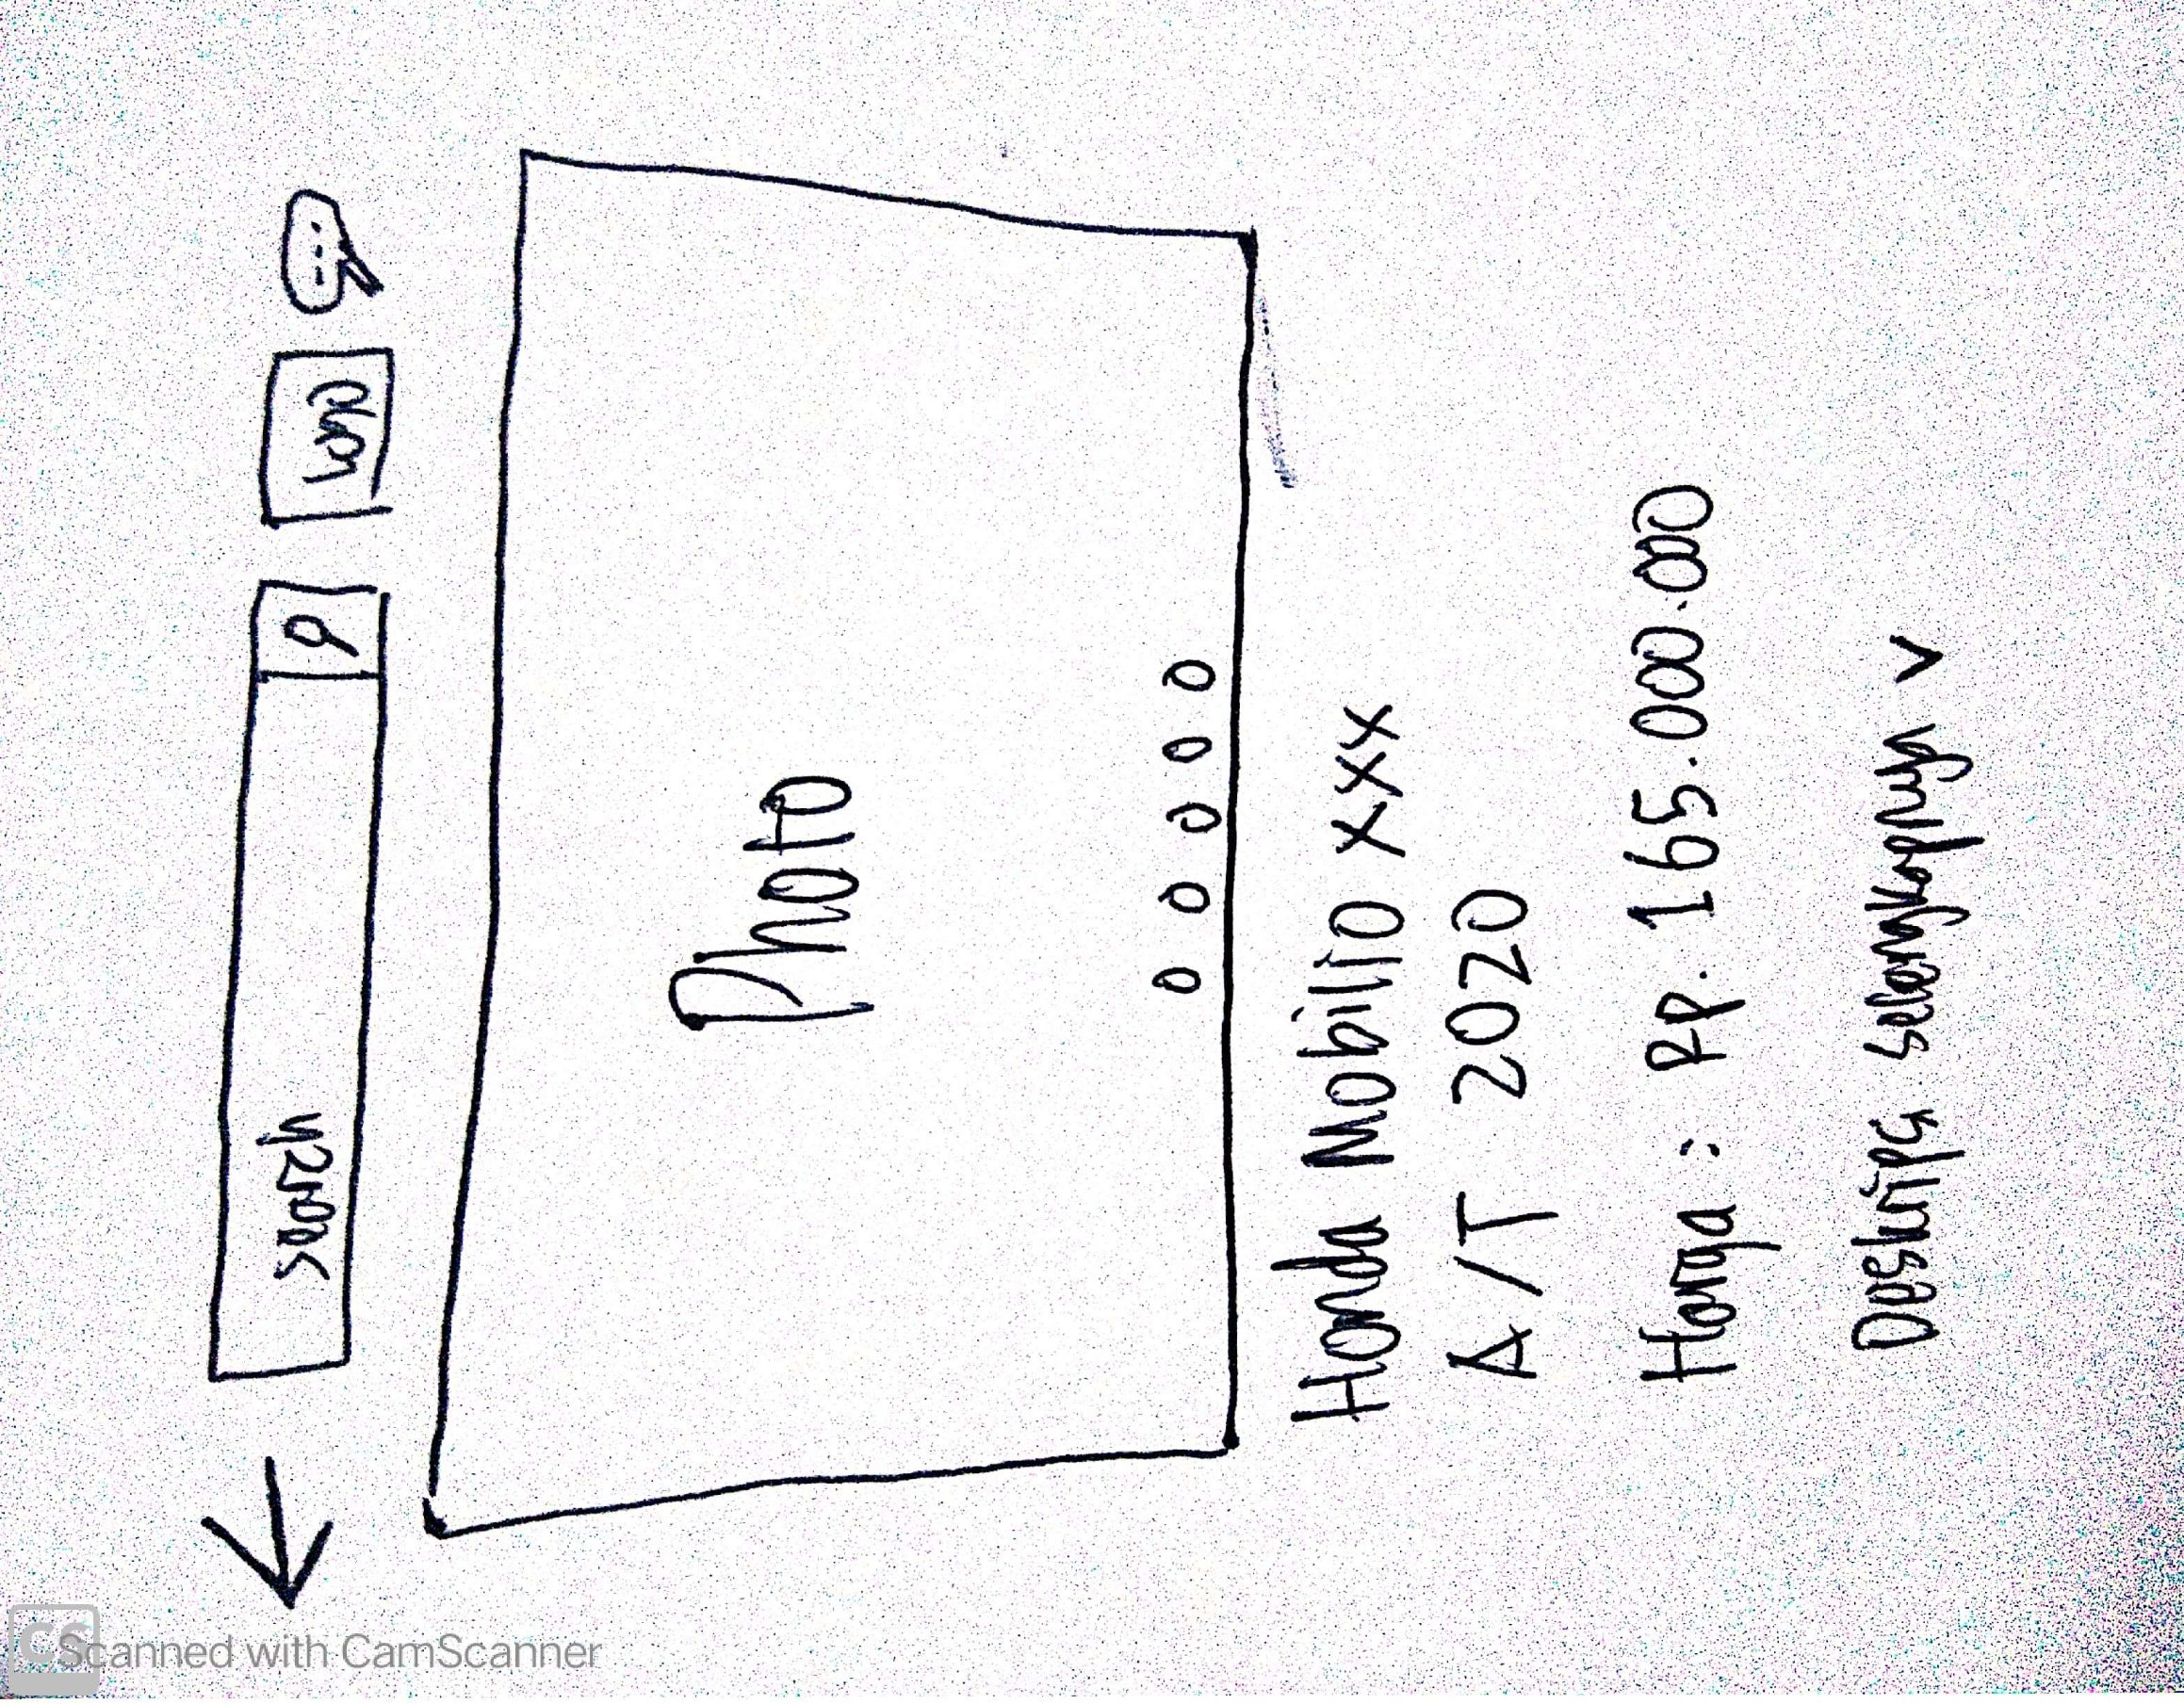 search
Photo
Honda Mobilio xxx
A/T 2020
Harga : Rp. 165.000.000
Deskripsi selengkapnya v
CS
Scanned with CamScanner